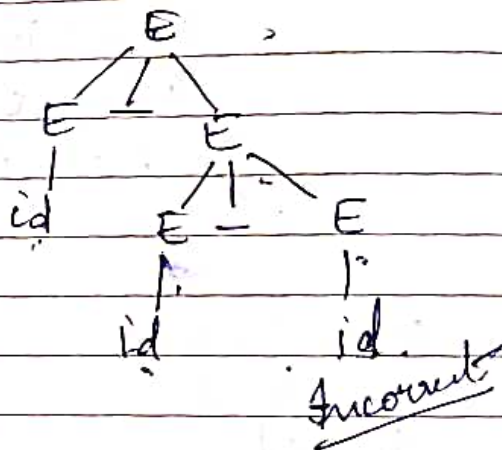 E
E - E
id E - E
id id
Incorrect